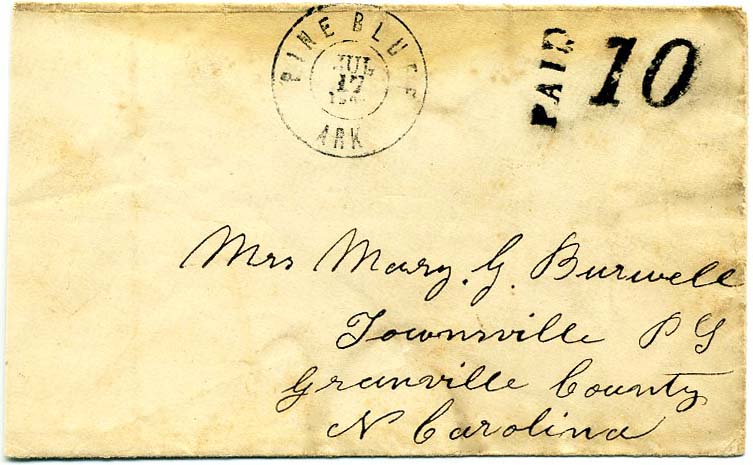 PINE BLUFF
JUL
17
ARK
PAID 10
Mrs Mary. G. Burwell
Townsville P G
Granville County
N Carolina